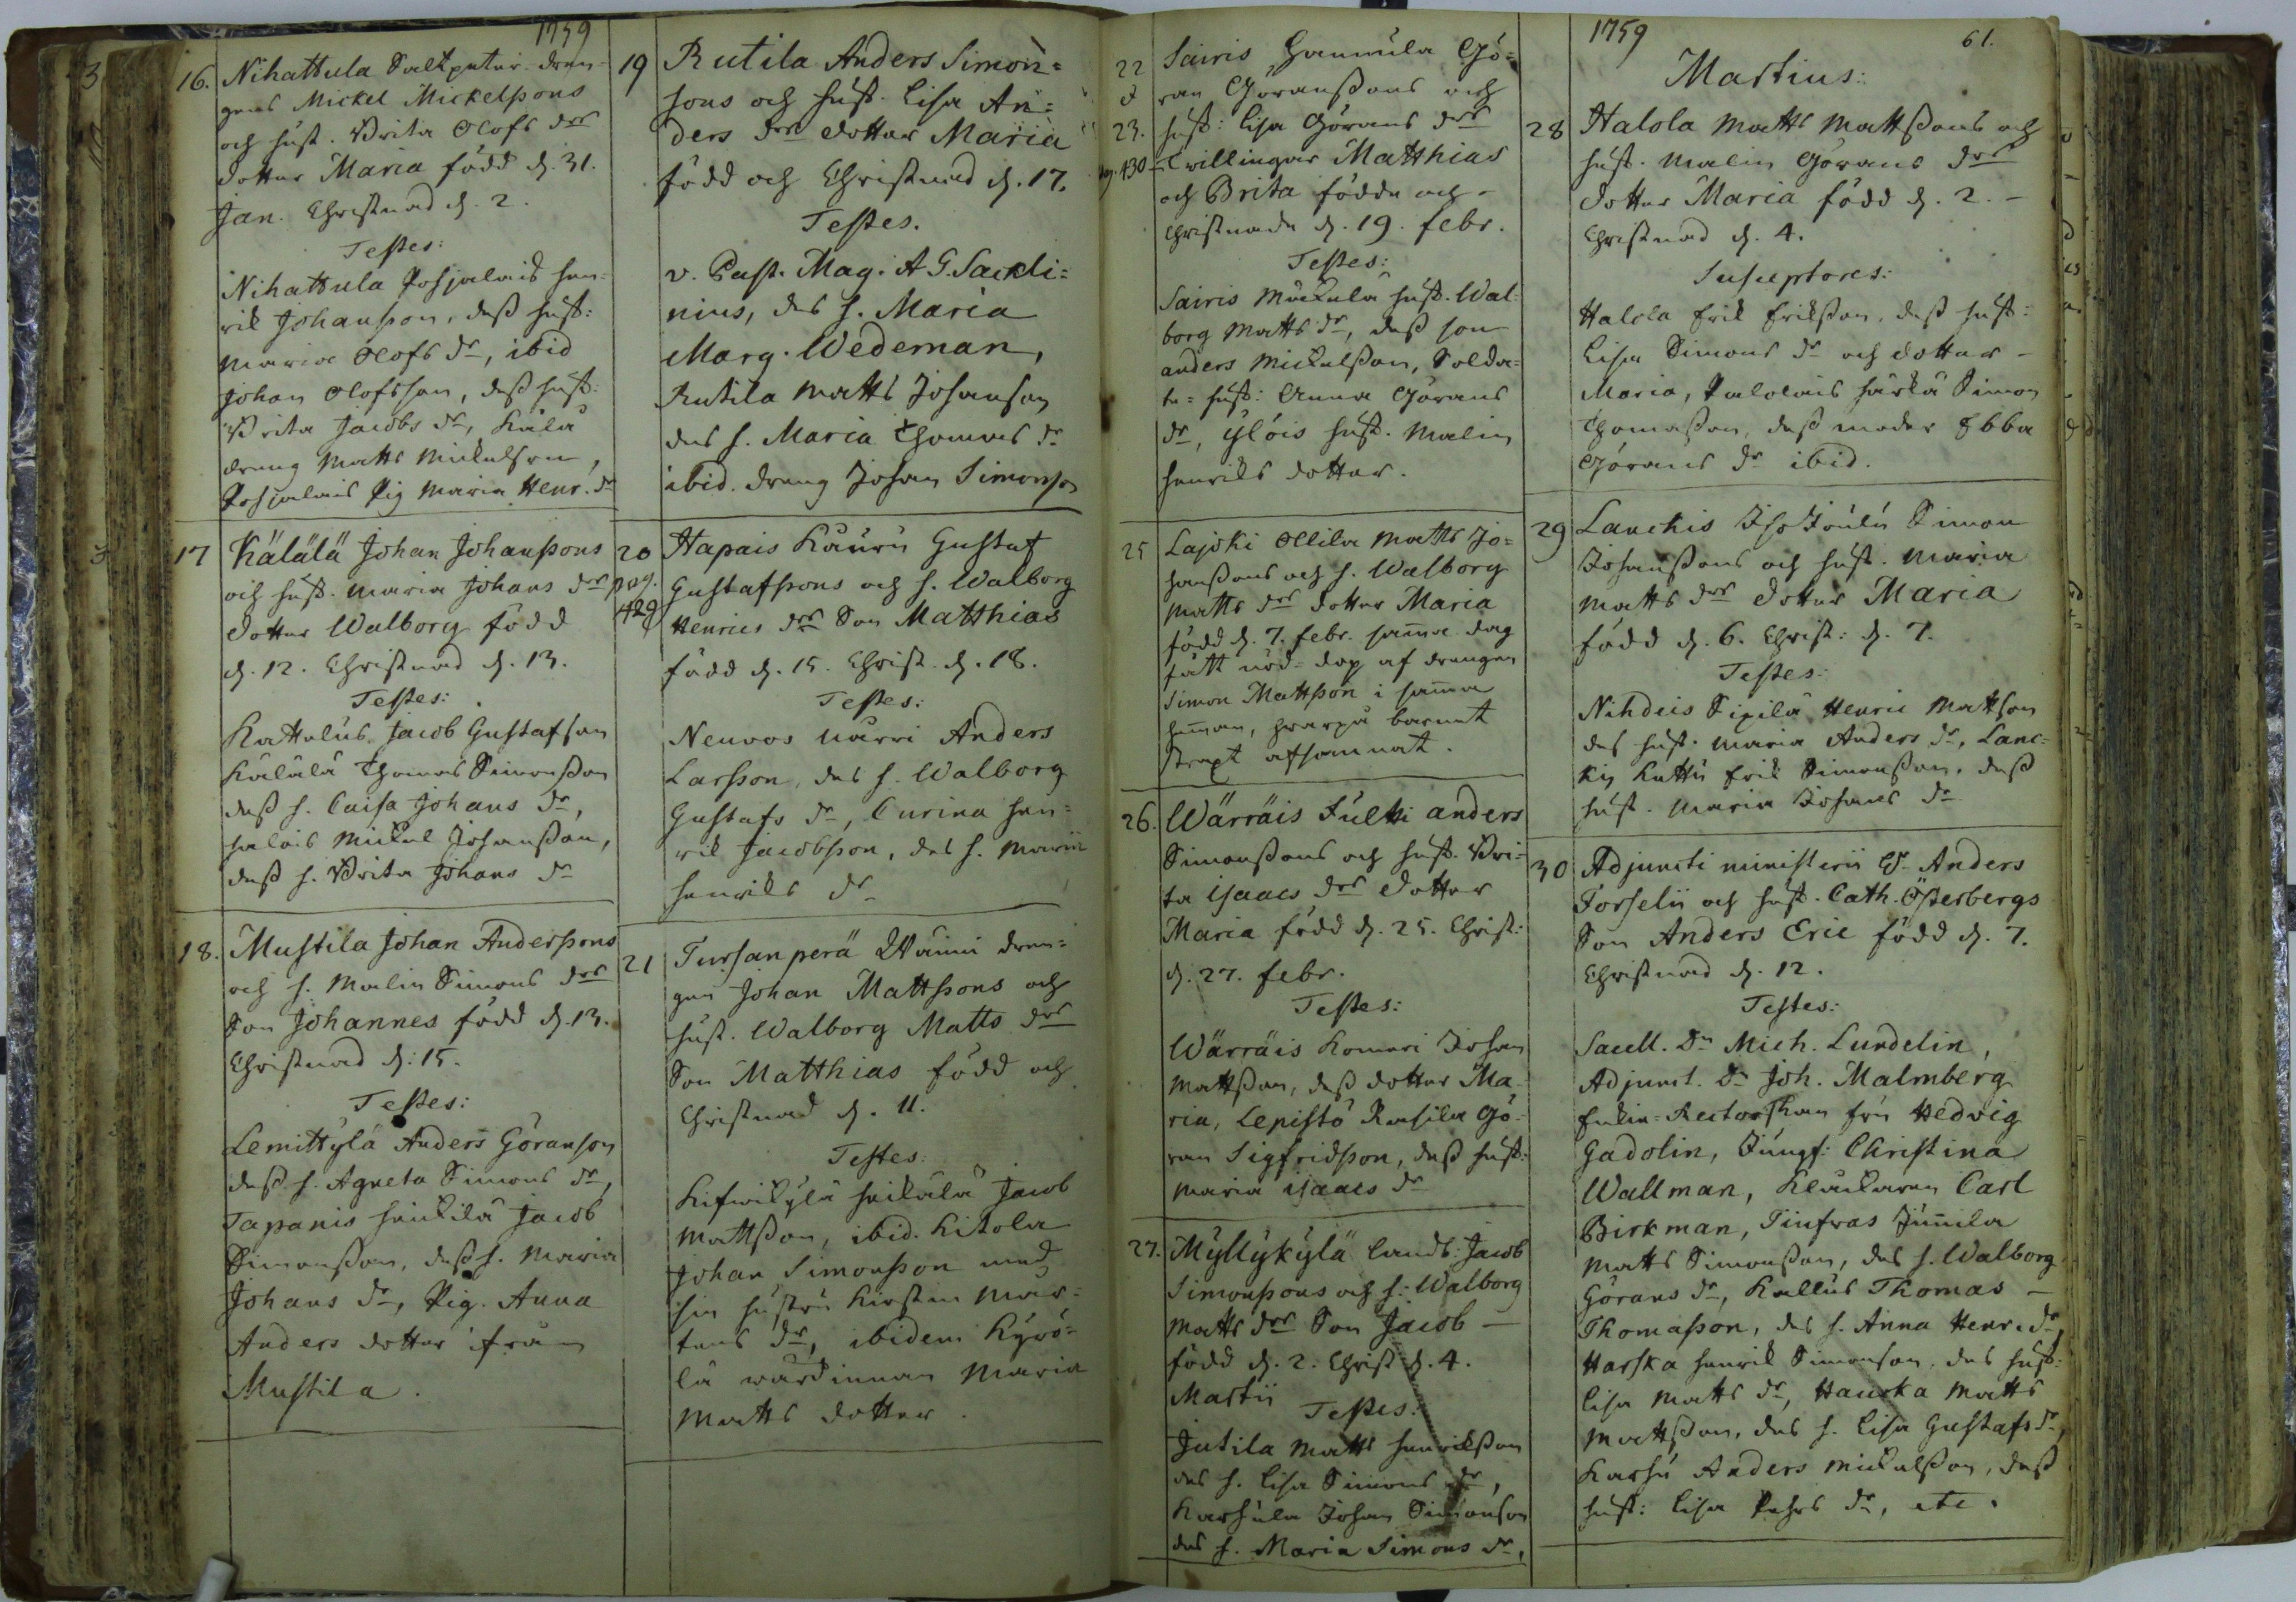 1759
16. Nihattula Saltpeter dren-
gens Mickel Mickelssons
och hust. Brita Olofs dr
dotter Maria född d. 31.
Jan. Christnad d. 2.
Testes:
Nihattula Pohjalais Hen-
rik Johansson, dess hust:
Maria Olofs dr, ibid
Johan Olofsson, dess hust:
Brita Jacobs dr, Kälä
dreng Matts Mickelsson,
Pohjalais Pig Maria Henr. dr
17 Kälälä Johan Johanssons
och hust. Maria Johans dr
dotter Walborg född
d. 12. Christnad d. 13.
Testes:
Kattelus Jacob Gustafsson
Kälälä Thomas Simonsson
dess h. Caisa Johans dr,
Halois Mickel Johansson,
dess h. Brita Johans dr
18. Mustila Johan Anderssons
och h. Malin Simons dr
Son Johannes född d. 13.
Christnad d: 15.
Testes:
Lemittylä Anders Göransson
dess h. Agneta Simons dr,
Tapanis Heickilä Jacob
Simonsson, dess h. Maria
Johans dr, Pig. Anna
Anders dotter från
Mustila.
19 Rutila Anders Simon=
sons och hust. Lisa An=
ders dr dotter Maria
född och Christnad d. 17.
Testes.
v. Past. Mag. A G. Sackli=
nius, des h. Maria
Marg. Wedeman,
Rutila Matts Johansson
des h. Maria Thomas dr
ibid. dreng Johan Simonsson
20 pag. 429 Hapais Kauru Gustaf
Gustafssons och h. Walborg
Henrics dr Son Matthias
född d. 15. Christ. d. 18.
Testes:
Neuvos Uärri Anders
Larsson, des h. Walborg
Gustafs dr, Curina Hen=
rik Jacobsson, des h. Maria
Henriks dr
21 Tursanperä Wäini dren=
gen Johan Mattssons och
hust. Walborg Matts dr
Son Matthias född och
Christnad d. 11.
Testes:
Kifwikylä Heikälä Jacob
Mattsson, ibid. Kitola
Johan Simonsson med
sin hustru Kirstin Mår=
tens dr, ibidem Kyrö=
lä wärdinnan Maria
Matts dotter.
22 & 23. pag. 430 Sairis Hannula Gö=
ran Göranssons och
hust: Lisa Görans dr
Twillingar Matthias
och Brita födde och
Christnade d. 19. febr.
Testes:
Sairis Mickulä hust. Wal-
borg Matts dr, dess son
Anders Mickelsson, Solda-
te= hust: Anna Görans
dr, Ylöis hust. Malin
Henriks dotter.
25 Lajoki Ollila Matts Jo=
hanssons och h. Walborg
Matts dr dotter Maria
född d. 7. febr. samma dag
fått nöd-dop af drengen
Simon Mattsson i samma
hemman, hvarpå barnet
straxt afsomnat.
26. Wärräis Julki Anders
Simonssons och hust. Bri-
ta Isaacs dr dotter
Maria född d. 25. Christ:
d. 27. febr.
Testes:
Wärräis Komeri Johan
Mattsson, dess dotter Ma-
ria, Lepistö Rasila Gö-
ran Sigfridsson, dess hust:
Maria Isaacs dr
27. Myllykylä Landb: Jacob
Simonssons och h: Walborg
Matts dr Son Jacob
född d. 2. Christ d. 4.
Martii
Testes:
Jutila Matts Henriksson
des h. Lisa Simons dr,
Karhula Johan Simonsson
des h. Maria Simons dr,
1759
61.
Martius:
28 Halola Matts Mattssons och
hust. Malin Görans dr
dotter Maria född d. 2.
Christnad d. 4.
Susceptores:
Halola Erik Eriksson, dess hust:
Lisa Simons dr och dotter
Maria, Palolais Härkä Simon
Thomasson, dess moder Ebba
Görans dr ibid.
29 Lanckis Iso Joulu Simon
Johanssons och hust. Maria
Matts dr dotter Maria
född d. 6. Christ: d. 7.
Testes:
Nihdeis Sipilä Henric Mattson
des hust. Maria Anders dr, Lanc-
kis Kuttu Erik Simonsson, dess
hust. Maria Johans dr
30 Adjuncti ministerii Dn Anders
Forselii och hust. Cath. Österbergs
Son Anders Eric född d. 7.
Christnad d. 12.
Testes:
Sacell. Dn Mich. Lundelin,
Adjunct. Dn Joh. Malmberg
Enkie-Rectorskan fru Hedvig
Gadolin, Jungf: Christina
Wallman, Klåckaren Carl
Birkman, Tinfras Junnila
Matts Simonsson, des h. Walborg
Görans dr, Kallus Thomas
Thomasson, des h. Anna Henr. dr,
Harska Henrik Simonsson, des hust:
Lisa Matts dr, Hauska Matts
Mattsson, des h. Lisa Gustafs dr,
Karhu Anders Mickelsson, dess
hust: Lisa Pehrs dr, etc.